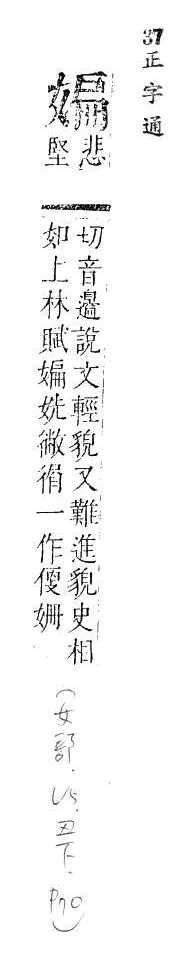 37 正字通
媥 悲堅
切音邊說文輕貌又難進貌史相
如上林賦媥姺徶㣯一作便姍
(女部.VS.丑下.P70)